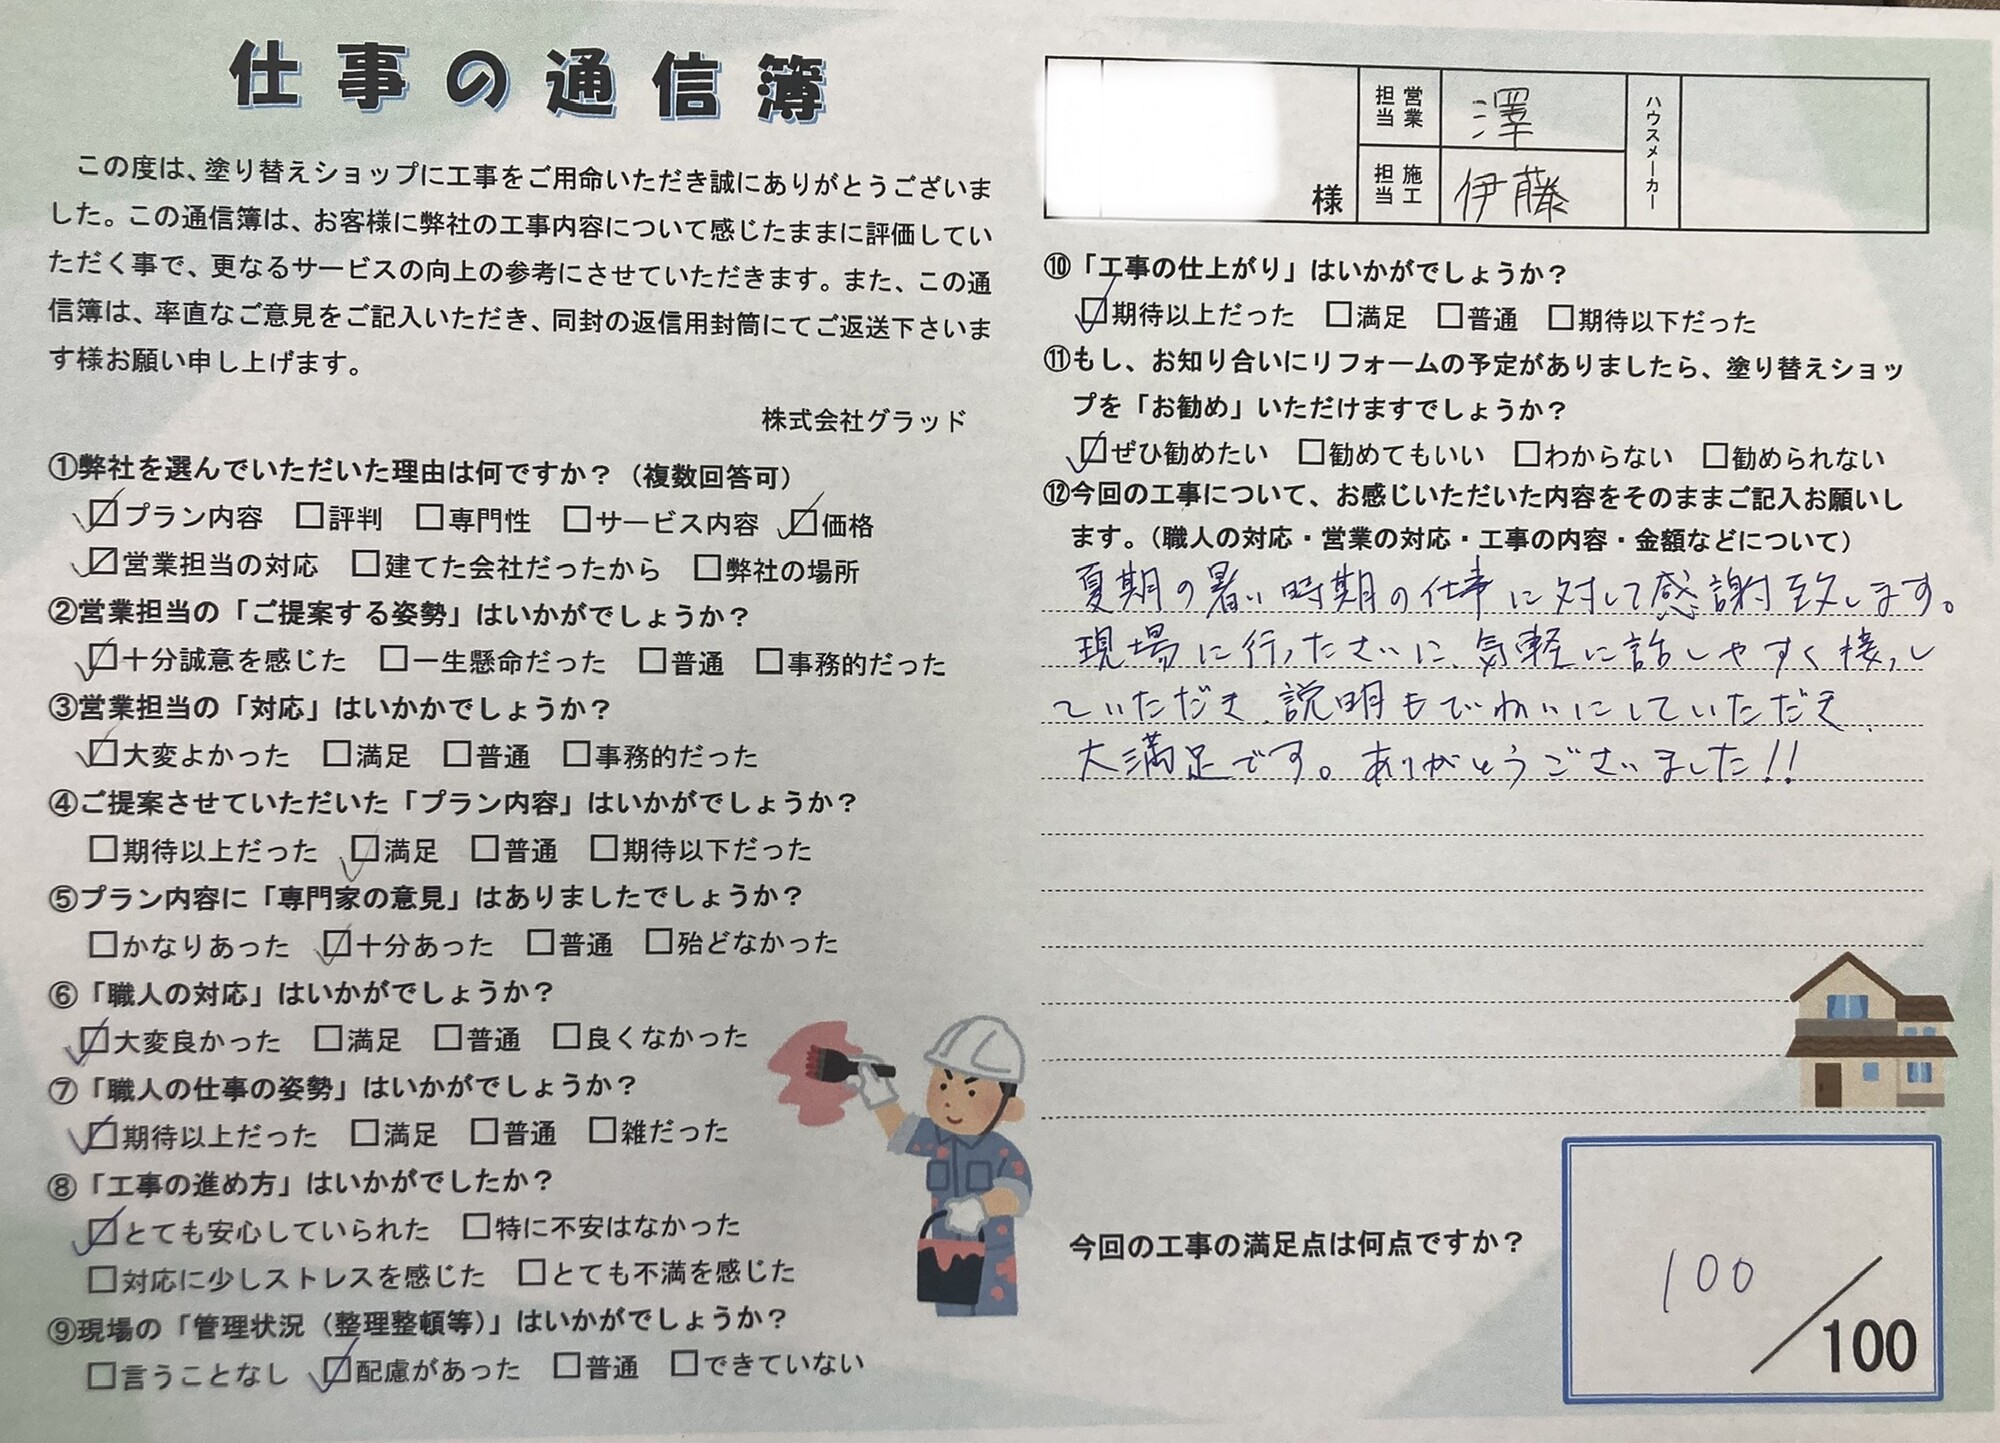 仕事の通信簿
この度は、塗り替えショップに工事をご用命いただき誠にありがとうございま
した。この通信簿は、お客様に弊社の工事内容について感じたままに評価してい
ただく事で、更なるサービスの向上の参考にさせていただきます。また、この通
信簿は、率直なご意見をご記入いただき、同封の返信用封筒にてご返送下さいま
す様お願い申し上げます。
株式会社グラッド
①弊社を選んでいただいた理由は何ですか?(複数回答可)
☑プラン内容 □評判 □専門性 □サービス内容 ☑価格
☑営業担当の対応 □建てた会社だったから □弊社の場所
②営業担当の「ご提案する姿勢」はいかがでしょうか?
☑十分誠意を感じた □一生懸命だった □普通 □事務的だった
③営業担当の「対応」はいかかでしょうか?
☑大変よかった □満足 □普通 □事務的だった
④ご提案させていただいた「プラン内容」はいかがでしょうか?
□期待以上だった ☑満足 □普通 □期待以下だった
⑤プラン内容に「専門家の意見」はありましたでしょうか?
□かなりあった ☑十分あった □普通 □殆どなかった
⑥「職人の対応」はいかがでしょうか?
☑大変良かった □満足 □普通 □良くなかった
⑦「職人の仕事の姿勢」はいかがでしょうか?
☑期待以上だった □満足 □普通 □雑だった
⑧「工事の進め方」はいかがでしたか?
☑とても安心していられた □特に不安はなかった
□対応に少しストレスを感じた □とても不満を感じた
⑨現場の「管理状況(整理整頓等)」はいかがでしょうか?
□言うことなし ☑配慮があった □普通 □できていない
様
営業担当 澤
施工担当 伊藤
ハウスメーカー
⑩「工事の仕上がり」はいかがでしょうか?
☑期待以上だった □満足 □普通 □期待以下だった
⑪もし、お知り合いにリフォームの予定がありましたら、塗り替えショッ
プを「お勧め」いただけますでしょうか?
☑ぜひ勧めたい □勧めてもいい □わからない □勧められない
⑫今回の工事について、お感じいただいた内容をそのままご記入お願いし
ます。(職人の対応・営業の対応・工事の内容・金額などについて)
夏期の暑い時期の仕事に対して感謝致します。
現場に行ったさいに、気軽に話しやすく接っし
ていただき、説明もていねいにしていただき、
大満足です。ありがとうございました!!
今回の工事の満足点は何点ですか?
100/100